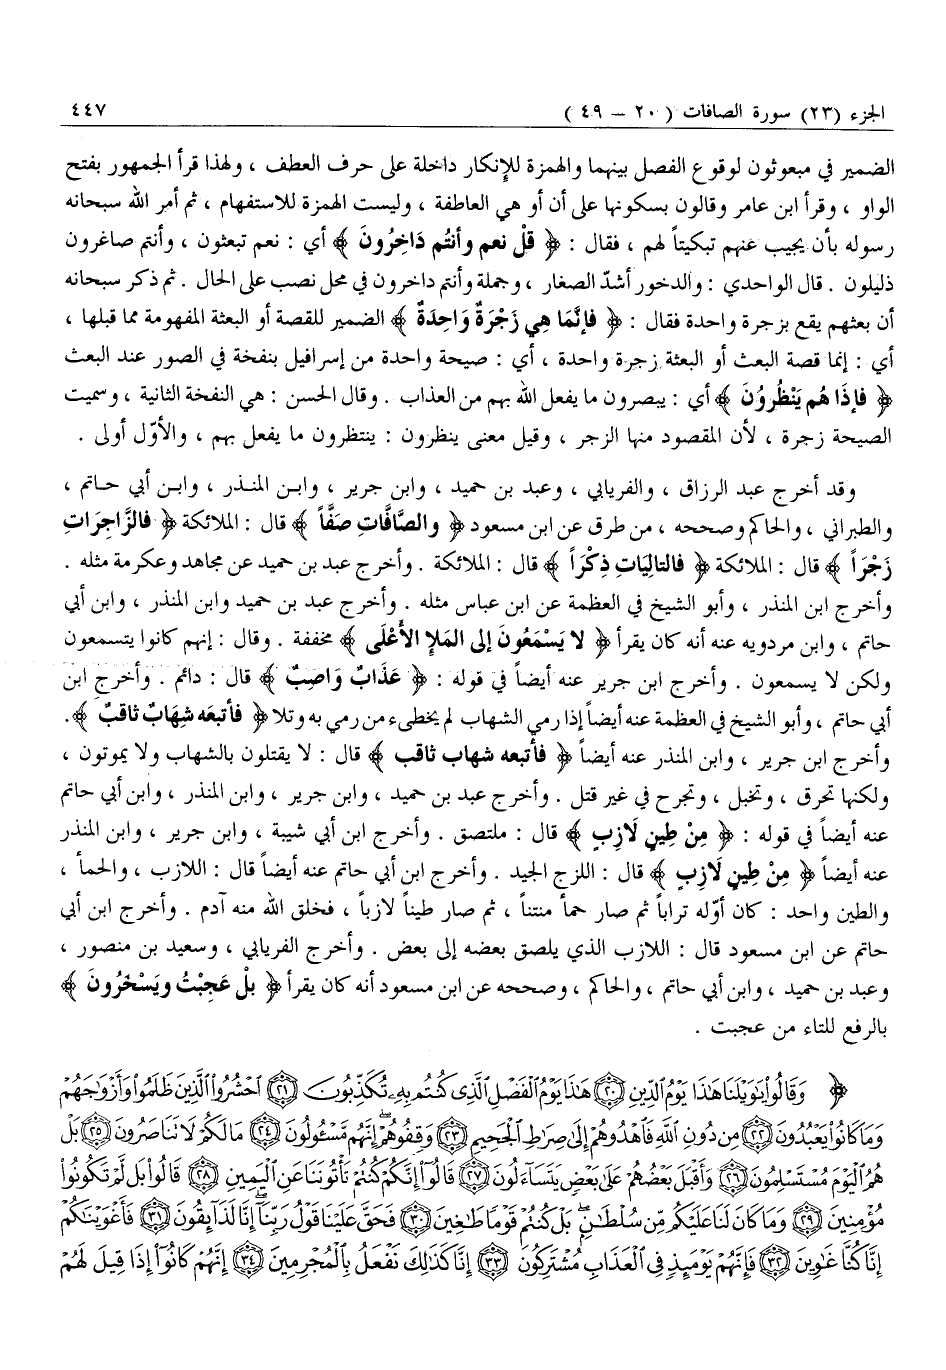 الجزء (٢٣) سورة الصافات ( ٢٠ – ٤٩ ) ٤٤٧
الضمير في مبعوثون لوقوع الفصل بينهما والهمزة للإنكار داخلة على حرف العطف ، ولهذا قرأ الجمهور بفتح
الواو ، وقرأ ابن عامر وقالون بسكونها على أن أو هي العاطفة ، وليست الهمزة للاستفهام ، ثم أمر الله سبحانه
رسوله بأن يجيب عنهم تبكيتاً لهم ، فقال : ﴿ قلْ نعم وأنتُم دَاخِرُونَ ﴾ أي : نعم تبعثون ، وأنتم صاغرون
ذليلون . قال الواحدي : والدخور أشدّ الصغار ، وجملة وأنتم داخرون في محل نصب على الحال . ثم ذكر سبحانه
أن بعثهم يقع بزجرة واحدة فقال : ﴿ فإنَّما هِي زَجْرَةٌ وَاحِدَةٌ ﴾ الضمير للقصة أو البعثة المفهومة مما قبلها ،
أي : إنما قصة البعث أو البعثة زجرة واحدة ، أي : صيحة واحدة من إسرافيل بنفخة في الصور عند البعث
﴿ فإذَا هُم يَنْظُرُوُنَ ﴾ أي : يبصرون ما يفعل الله بهم من العذاب . وقال الحسن : هي النفخة الثانية ، وسميت
الصيحة زجرة ، لأن المقصود منها الزجر ، وقيل معنى ينظرون : ينتظرون ما يفعل بهم ، والأوّل أولى .
وقد أخرج عبد الرزاق ، والفريابي ، وعبد بن حميد ، وابن جرير ، وابـن المنـذر ، وابـن أبي حـاتم ،
والطبراني ، والحاكم وصححه ، من طرق عن ابن مسعود ﴿ والصَّافَّاتِ صَفَّاً ﴾ قال : الملائكة ﴿ فالزَّاجِرَاتِ
زَجْرَاً ﴾ قال : الملائكة ﴿ فالتالِيَاتِ ذِكْرَاً ﴾ قال : الملائكة . وأخرج عبد بن حميد عن مجاهد وعكرمة مثله .
وأخرج ابن المنذر ، وأبو الشيخ في العظمة عن ابن عباس مثله . وأخرج عبد بن حميد وابن المنذر ، وابن أبي
حاتم ، وابن مردويه عنه أنه كان يقرأ ﴿ لا يَسْمَعُونَ إلى المَلإ الأَعْلَى ﴾ مخففة . وقال : إنهم كانوا يتسمعون
ولكن لا يسمعون . وأخرج ابن جرير عنه أيضاً في قوله : ﴿ عَذَابٌ وَاصِبٌ ﴾ قال : دائم . وأخرج ابن
أبي حاتم ، وأبو الشيخ في العظمة عنه أيضاً إذا رمي الشهاب لم يخطىء من رمي به وتلا ﴿ فأتبعَه شِهَابٌ ثاقبٌ ﴾.
وأخرج ابن جرير ، وابن المنذر عنه أيضاً ﴿ فأتبعه شهاب ثاقب ﴾ قال : لا يقتلون بالشهاب ولا يموتون ،
ولكنها تحرق ، وتخبل ، وتجرح في غير قتل . وأخرج عبد بن حميد ، وابن جرير ، وابن المنذر ، وابن أبي حاتم
عنه أيضاً في قوله : ﴿ مِنْ طِينٍ لَازِبٍ ﴾ قال : ملتصق . وأخرج ابن أبي شيبة ، وابن جرير ، وابن المنذر
عنه أيضاً ﴿ مِنْ طِينٍ لَازِبٍ ﴾ قال : اللزج الجيد . وأخرج ابن أبي حاتم عنه أيضاً قال : اللازب ، والحمأ ،
والطين واحد : كان أوّله تراباً ثم صار حمأ منتناً ، ثم صار طيناً لازباً ، فخلق الله منه آدم . وأخرج ابن أبي
حاتم عن ابن مسعود قال : اللازب الذي يلصق بعضه إلى بعض . وأخرج الفريابي ، وسعيد بن منصور ،
وعبد بن حميد ، وابن أبي حاتم ، والحاكم ، وصححه عن ابن مسعود أنه كان يقرأ ﴿ بلْ عَجِبْتُ ويَسْخَرُونَ ﴾
بالرفع للتاء من عجبت .
﴿ وَقَالُوا۟ يَـٰوَيْلَنَا هَـٰذَا يَوْمُ ٱلدِّينِ ﴿٢٠﴾ هَـٰذَا يَوْمُ ٱلْفَصْلِ ٱلَّذِى كُنتُم بِهِۦ تُكَذِّبُونَ ﴿٢١﴾ ٱحْشُرُوا۟ ٱلَّذِينَ ظَلَمُوا۟ وَأَزْوَٰجَهُمْ
وَمَا كَانُوا۟ يَعْبُدُونَ ﴿٢٢﴾ مِن دُونِ ٱللَّهِ فَٱهْدُوهُمْ إِلَىٰ صِرَٰطِ ٱلْجَحِيمِ ﴿٢٣﴾ وَقِفُوهُمْ ۖ إِنَّهُم مَّسْـُٔولُونَ ﴿٢٤﴾ مَا لَكُمْ لَا تَنَاصَرُونَ ﴿٢٥﴾ بَلْ
هُمُ ٱلْيَوْمَ مُسْتَسْلِمُونَ ﴿٢٦﴾ وَأَقْبَلَ بَعْضُهُمْ عَلَىٰ بَعْضٍ يَتَسَآءَلُونَ ﴿٢٧﴾ قَالُوٓا۟ إِنَّكُمْ كُنتُمْ تَأْتُونَنَا عَنِ ٱلْيَمِينِ ﴿٢٨﴾ قَالُوا۟ بَل لَّمْ تَكُونُوا۟
مُؤْمِنِينَ ﴿٢٩﴾ وَمَا كَانَ لَنَا عَلَيْكُم مِّن سُلْطَـٰنٍۭ ۖ بَلْ كُنتُمْ قَوْمًا طَـٰغِينَ ﴿٣٠﴾ فَحَقَّ عَلَيْنَا قَوْلُ رَبِّنَآ ۖ إِنَّا لَذَآئِقُونَ ﴿٣١﴾ فَأَغْوَيْنَـٰكُمْ
إِنَّا كُنَّا غَـٰوِينَ ﴿٣٢﴾ فَإِنَّهُمْ يَوْمَئِذٍ فِى ٱلْعَذَابِ مُشْتَرِكُونَ ﴿٣٣﴾ إِنَّا كَذَٰلِكَ نَفْعَلُ بِٱلْمُجْرِمِينَ ﴿٣٤﴾ إِنَّهُمْ كَانُوٓا۟ إِذَا قِيلَ لَهُمْ